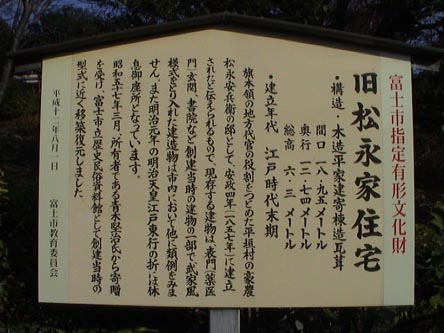 富士市指定有形文化財
旧松永家住宅
・構造・木造平家建寄棟造瓦葺
間口 一八・九五メートル
奥行 一二・七四メートル
総高 六・三 メートル
・建立年代 江戸時代末期
旗本領の地方代官の役割をつとめた平垣村の豪農
松永安兵衛の邸として、安政四年(一八五七年)に建立
されたと伝えられるもので、現存する建物は、表門(薬医
門)玄関、書院など創建当時の建物の一部で、武家風
様式をとり入れた建造物は市内において他に類例をみま
せん。また明治元年の明治天皇江戸東行の折には休
息御座所となっています。
昭和五十七年三月、所有者である青木堅治氏から寄贈
を受け、富士市立歴史民俗資料館として創建当時の
型式に近く移築復元しました。
平成十二年八月一日
富士市教育委員会